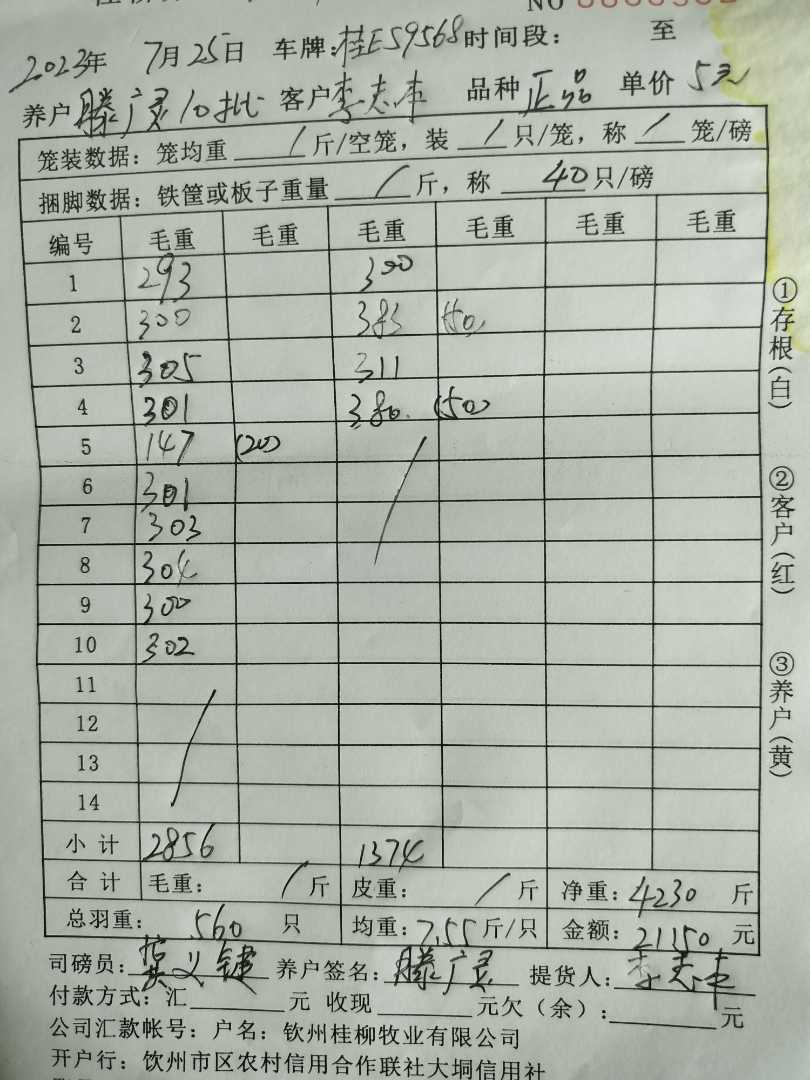 NO
2023年 7月25日 车牌:桂E59568 时间段: 至
养户 滕广灵10批 客户 李志 品种 正品 单价 5元
笼装数据: 笼均重 / 斤/空笼, 装 / 只/笼, 称 / 笼/磅
捆脚数据: 铁筐或板子重量 / 斤, 称 40只/磅
编号 毛重 毛重 毛重 毛重 毛重 毛重
1 293 300
2 300 383
3 305 311
4 301 380. (50)
5 147 (20)
6 301
7 303
8 304
9 300
10 302
11
12
13
14
小计 2856 1374
合计 毛重: / 斤 皮重: / 斤 净重: 4230 斤
总羽重: 560 只 均重: 7.55 斤/只 金额: 21150 元
司磅员: 义键 养户签名: 滕广灵 提货人: 李志
付款方式: 汇 元 收现 元欠(余): 元
公司汇款帐号: 户名: 钦州桂柳牧业有限公司
开户行: 钦州市区农村信用合作联社大垌信用社
①存根(白)
②客户(红)
③养户(黄)